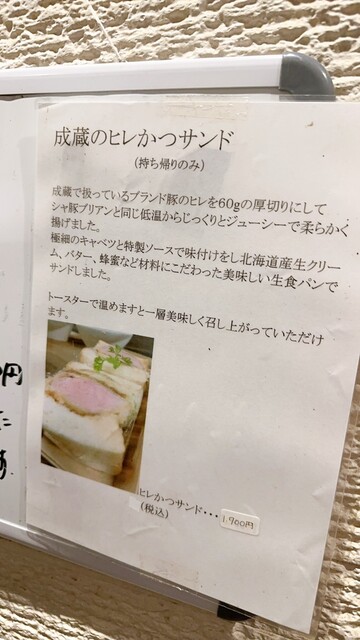 成蔵のヒレかつサンド
(持ち帰りのみ)
成蔵で扱っているブランド豚のヒレを60gの厚切りにして
シャ豚ブリアンと同じ低温からじっくりとジューシーで柔らかく
揚げました。
極細のキャベツと特製ソースで味付けをし北海道産生クリー
ム、バター、蜂蜜など材料にこだわった美味しい生食パンで
サンドしました。
トースターで温めますと一層美味しく召し上がっていただけ
ます。
ヒレかつサンド・・・1,700円
(税込)
円